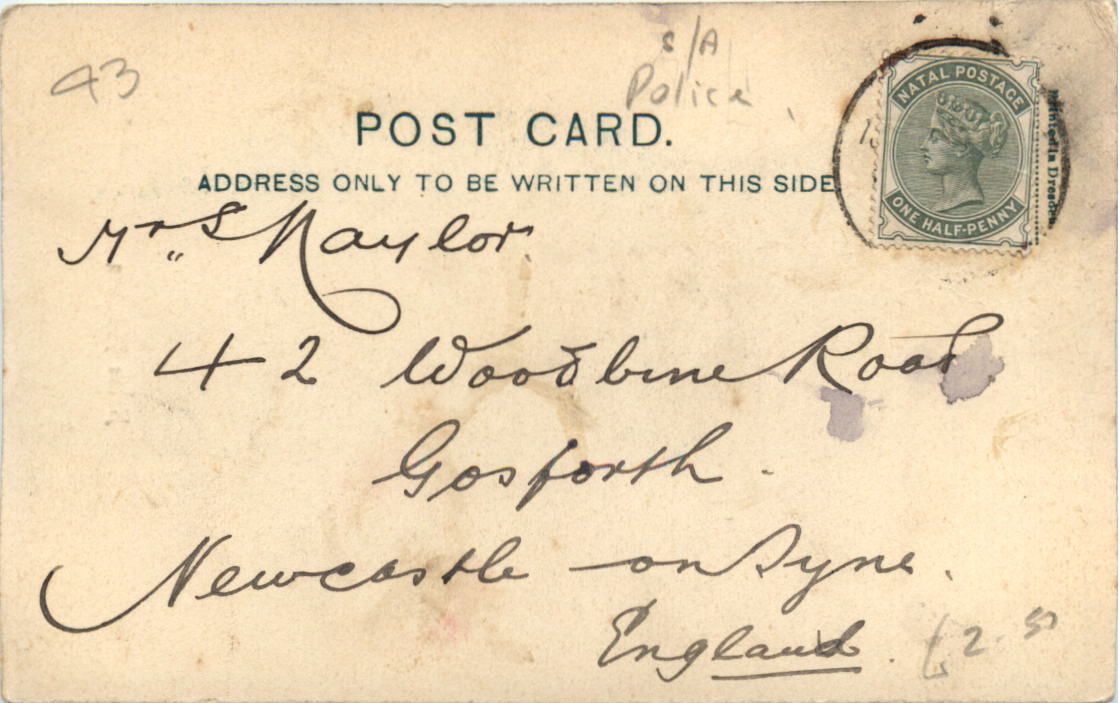 43
S/A
Police
POST CARD.
ADDRESS ONLY TO BE WRITTEN ON THIS SIDE
NATAL POSTAGE
ONE HALF-PENNY
Printed in Dresden
Mr S Naylor
42 Woodbine Road
Gosforth
Newcastle on Tyne.
England.
£2.50